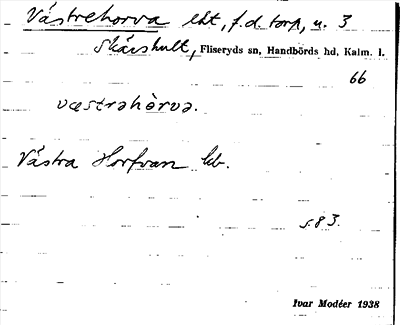 Västrehorva lht, f.d. torp, u. 3
Skärshult, Fliseryds sn, Handbörds hd, Kalm. l.
66
væstrəhòrva.
Västra Horfvan kb.
s. 83.
Ivar Modéer 1938